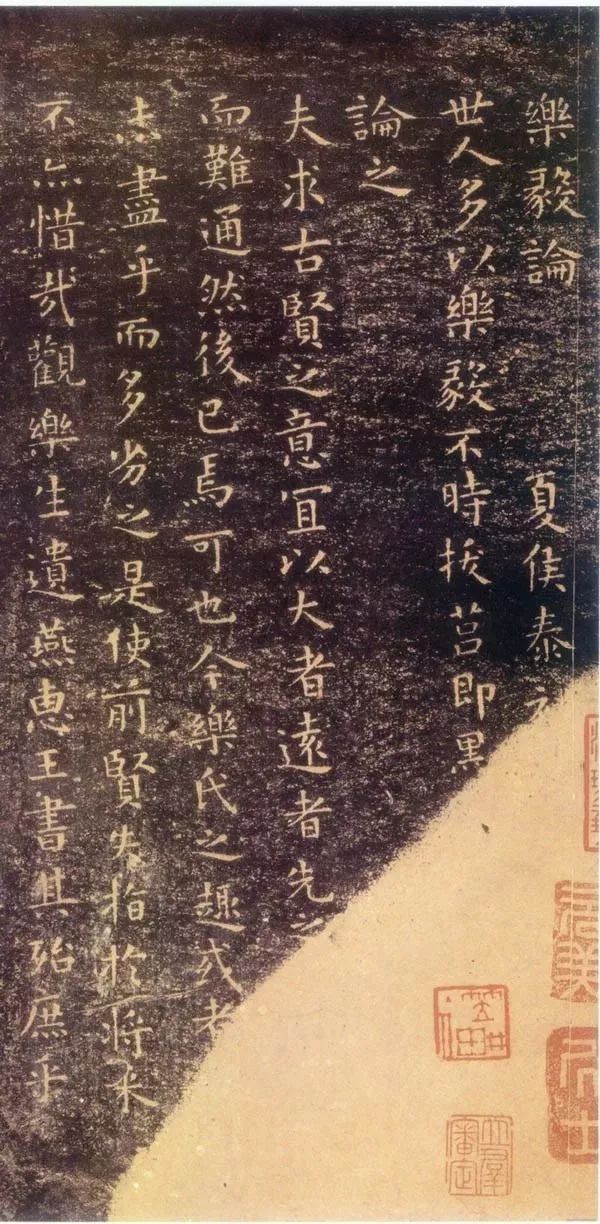 樂毅論 夏侯泰
世人多以樂毅不時拔莒即黑
論之
夫求古賢之意宜以大者遠者先之
而難通然後已焉可也今樂氏之趣或者
未盡乎而多劣之是使前賢失指於將来
不亦惜哉觀樂生遺燕惠王書其殆庶乎